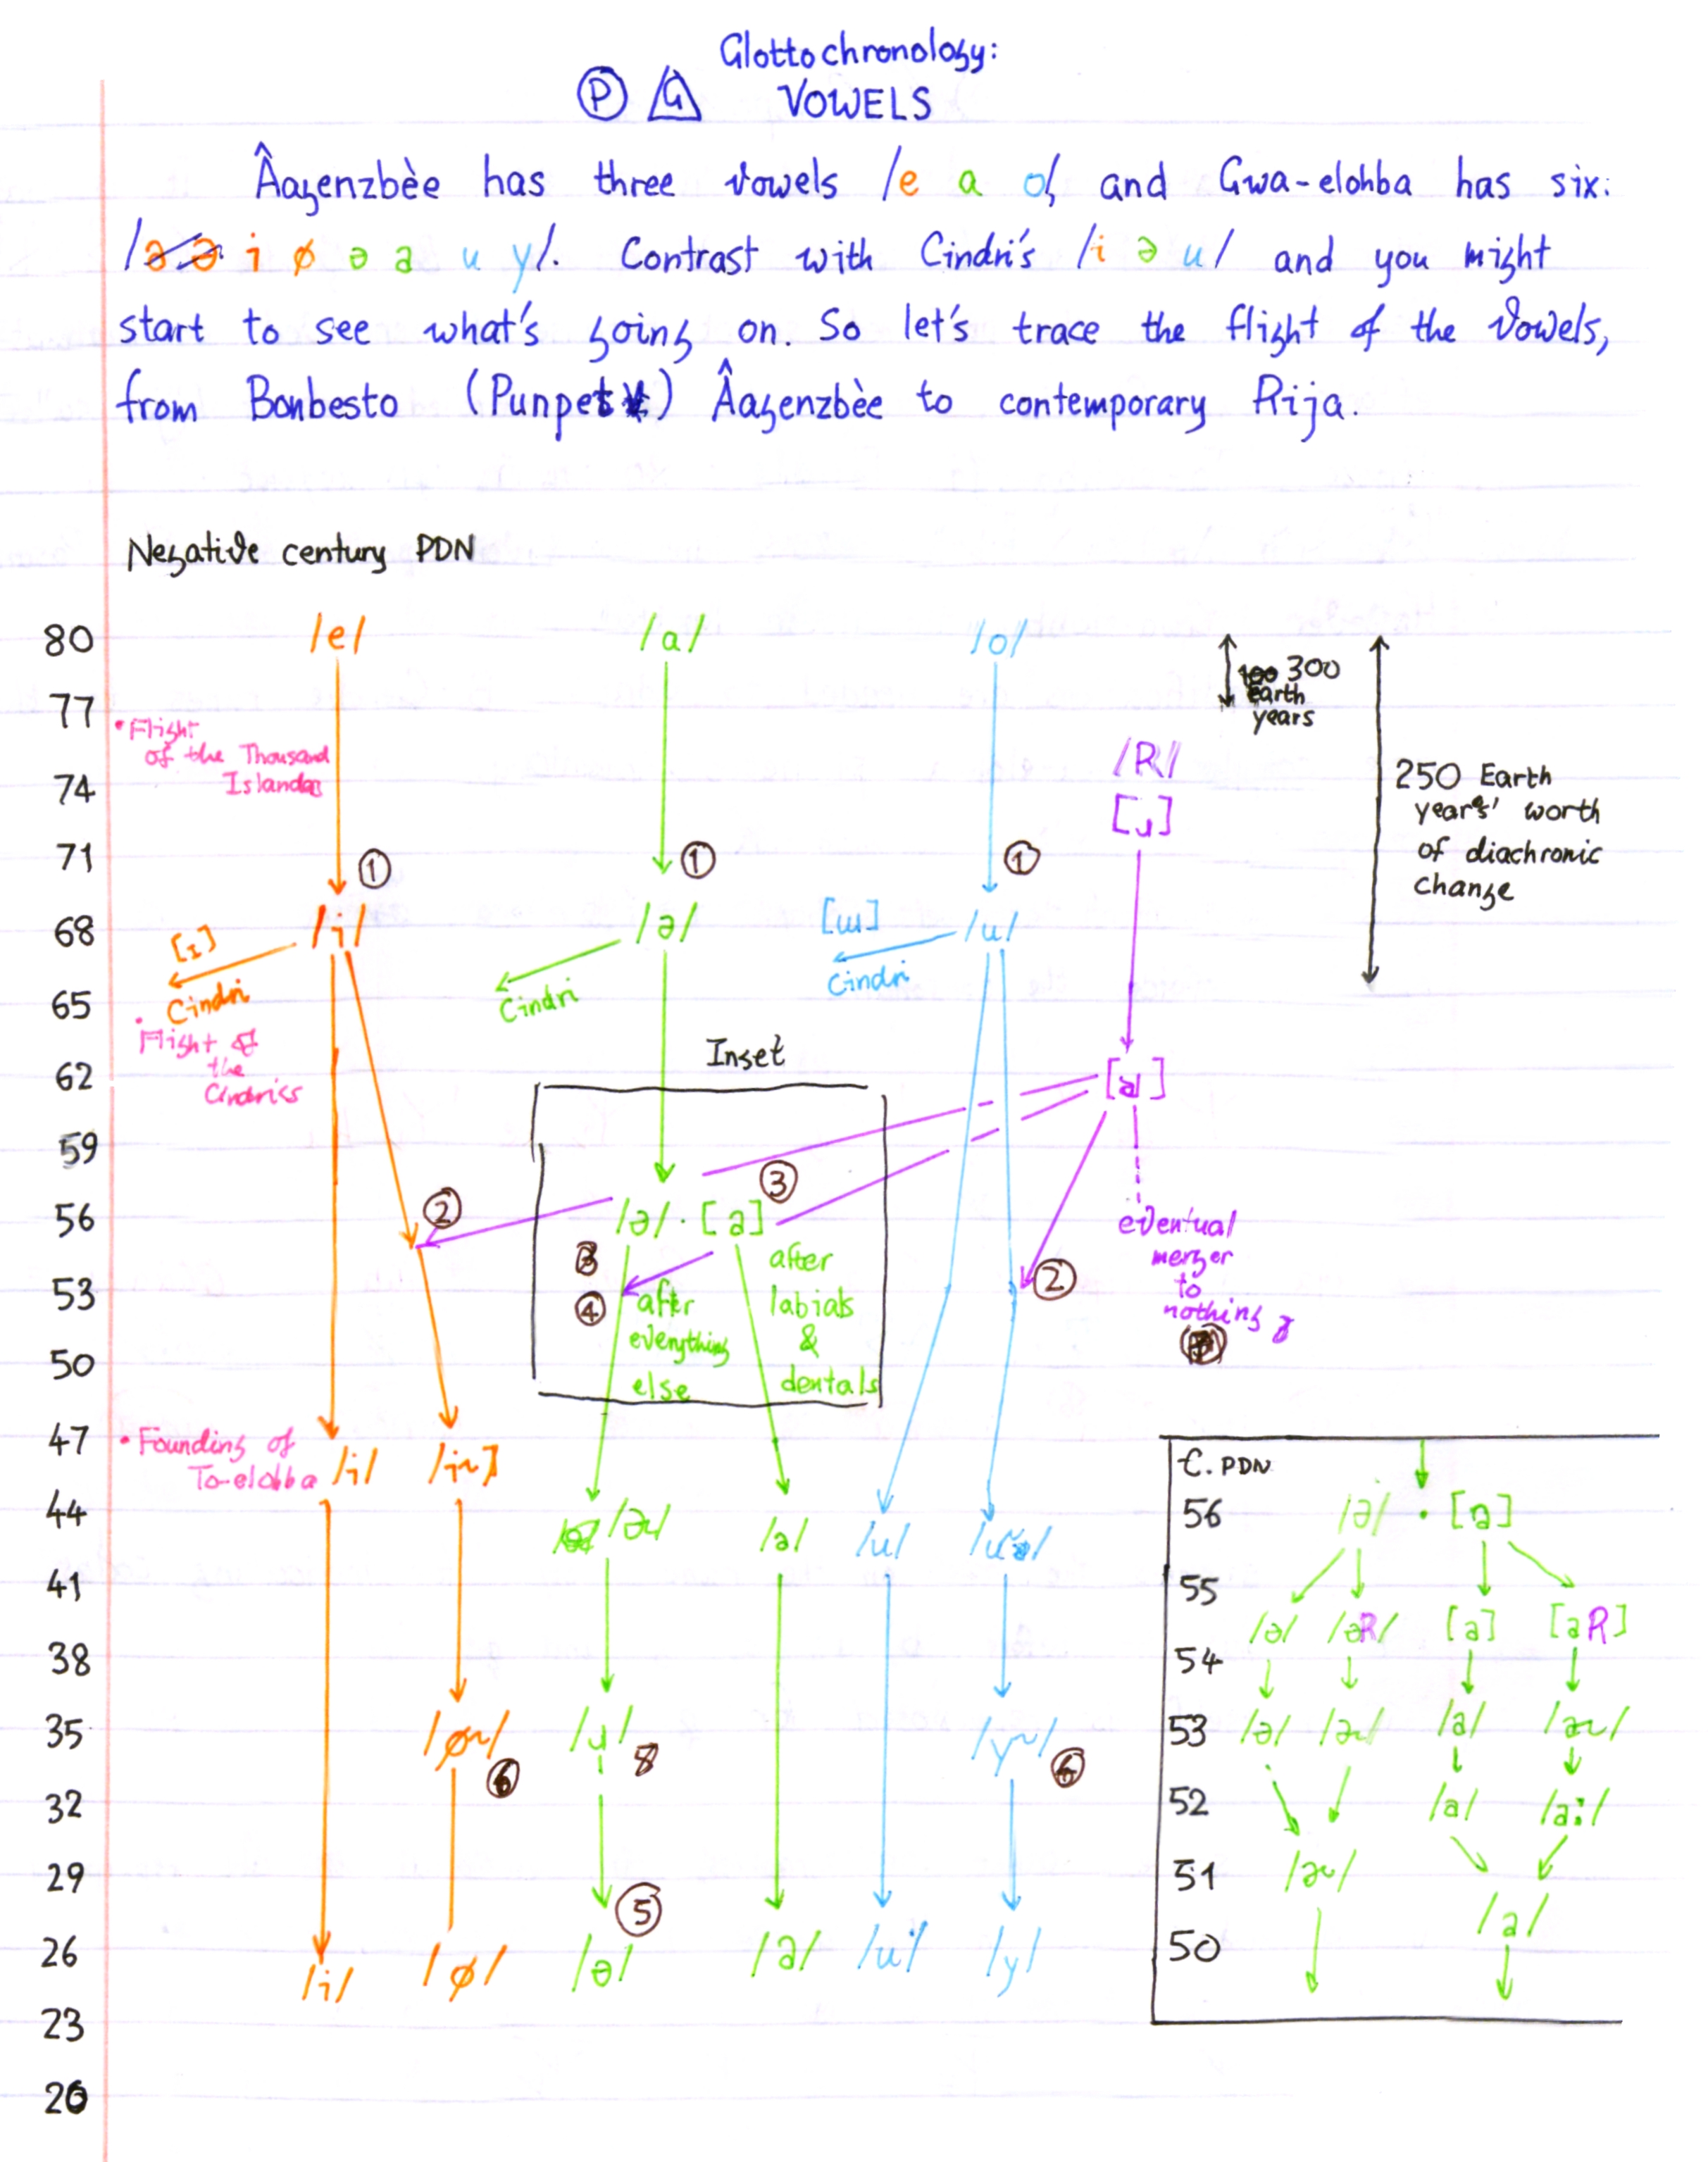 Glottochronology:
P G VOWELS
Âagenzbèe has three vowels /e a o/, and Gwa-elohba has six:
/ə ə i ø ə a u y/. Contrast with Cindri's /i ə u/ and you might
start to see what's going on. So let's trace the flight of the vowels,
from Bonbesto (Punpet) Âagenzbèe to contemporary Rija.
Negative century PDN
80 /e/ /a/ /o/
300
Earth
years
77
• Flight
of the Thousand
Islands
/R/
74
[ɹ]
250 Earth
years' worth
of diachronic
change
71 ① ① ①
68 /i/ /ə/ [ɯ] /u/
[ɪ]
Cindri Cindri Cindri
65
• Flight of
the
Cindriss
Inset
62 [ə]
59
③
56 ② /ə/ · [a]
eventual
merger
to
nothing
3 after
labials
&
dentals
53 ④ after
everything
else
②
50
47 • Founding of
To-elohba /i/ /i~]
C. PDN
44 /ə~/ /a/ /u/ /u~/
56 /ə/ · [a]
41
55
/ə/ /əR/ [a] [aR]
38
54
35 /ø~/ /ɥ/ 8 /y~/
6 6
53 /ə/ /ə~/ /a/ /a~/
32
52 /a/ /a:/
29
51 /ə~/
⑤
/a/
26 /i/ /ø/ /ə/ /a/ /u/ /y/
50
23
20